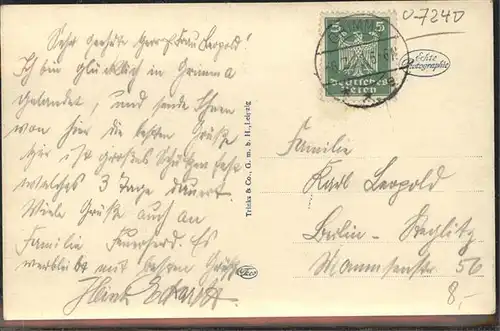 Sehr geehrte Herr & Frau Leopold!
Ich bin glücklich in Grimma
gelandet, und sende Ihnen
von hier die besten Grüße
hier ist großes Schützen fest
welches 3 Tage dauert
Viele Grüße auch an
Familie Feuerherd. Es
verbleibt mit besten Grüßen
Trinks & Co., G. m. b. H., Leipzig
0-7240
5
5
Deutsches
Reich
Echte
Photographie
Familie
Karl Leopold
Berlin-Steglitz
56
8,-